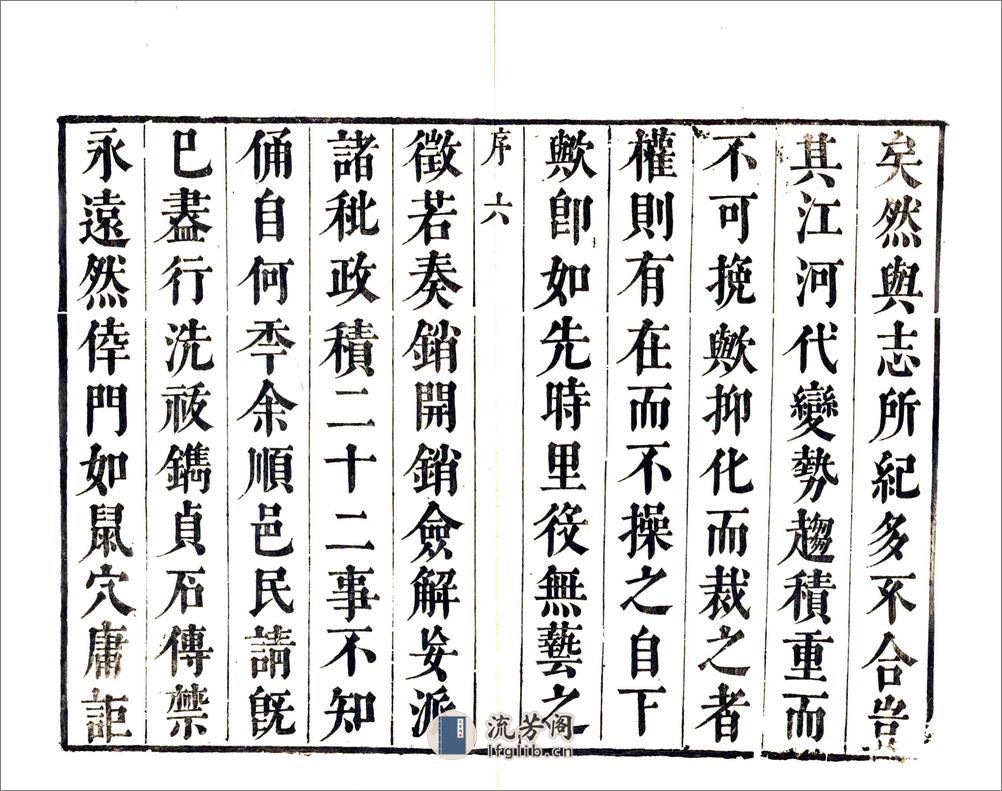 矣然與志所紀多不合豈
其江河代變勢趨積重而
不可挽歟抑化而裁之者
權則有在而不操之自下
歟卽如先時里役無藝之
序 六
徵若奏銷開銷僉解妄派
諸秕政積二十二事不知
俑自何秊余順邑民請旣
已盡行洗祓鐫貞石傳禁
永遠然倖門如鼠穴庸詎
流芳阁
lfglib.cn